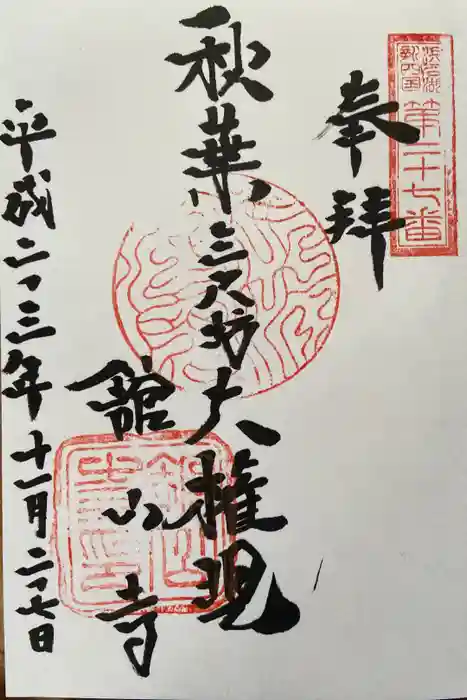 浜名湖
新四国
第二十七番
奉拝
秋葉三尺坊大権現
舘山寺
平成二十三年十一月二十七日